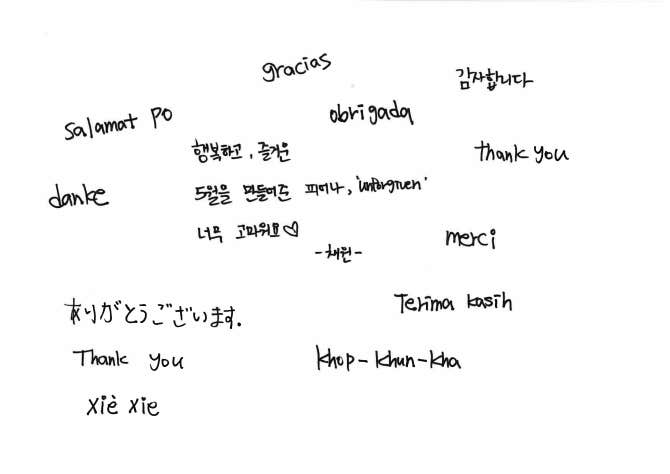 gracias
감사합니다
salamat po
obrigada
행복하고, 즐거운
thank you
danke
5월을 만들어준 피어나, 'unforgiven'
너무 고마워요♡
merci
-채원-
Terima kasih
ありがとうございます.
Thank you
khop-khun-kha
xiè xie